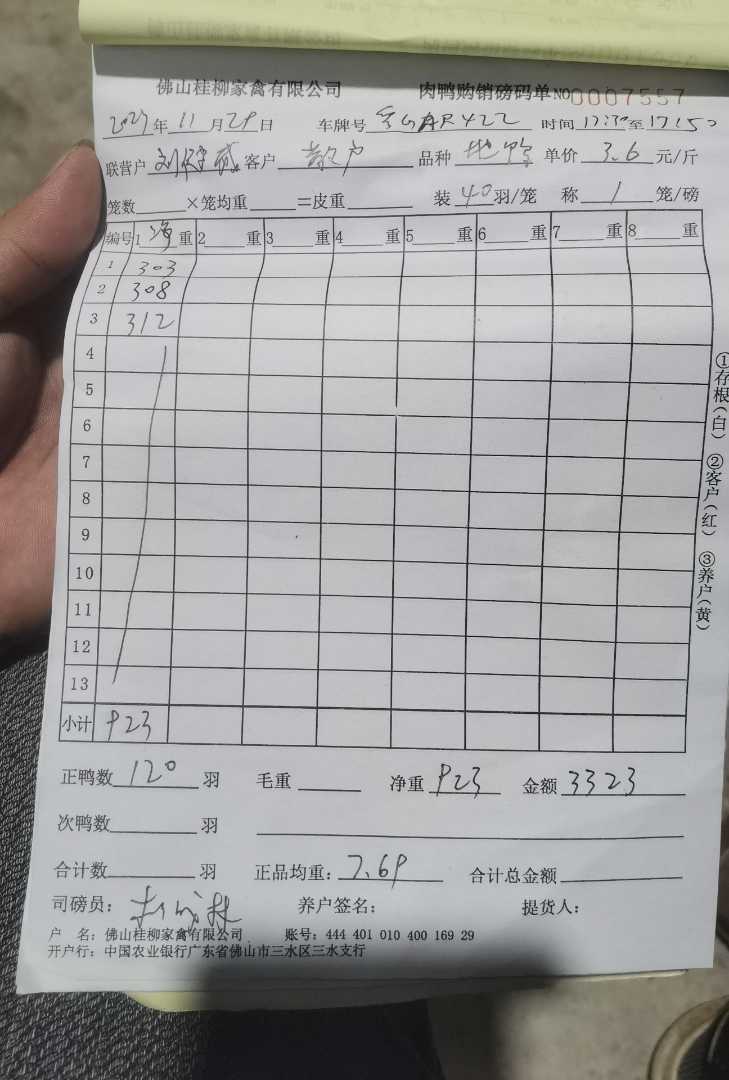 佛山桂柳家禽有限公司 肉鸭购销磅码单 NO 0007557
年 11 月 29 日 车牌号 R422 时间 至 17:50
联营户 刘 客户 散户 品种 单价 3.6 元/斤
笼数 ×笼均重 =皮重 装 40 羽/笼 称 1 笼/磅
编号 1 净 重 2 重 3 重 4 重 5 重 6 重 7 重 8 重
1 303
2 308
3 312
4
5
6
7
8
9
10
11
12
13
小计 923
正鸭数 120 羽 毛重 净重 923 金额 3323
次鸭数 羽
合计数 羽 正品均重: 7.69 合计总金额
司磅员: 养户签名: 提货人:
户 名: 佛山桂柳家禽有限公司 账号: 444 401 010 400 169 29
开户行: 中国农业银行广东省佛山市三水区三水支行
①存根(白) ②客户(红) ③养户(黄)